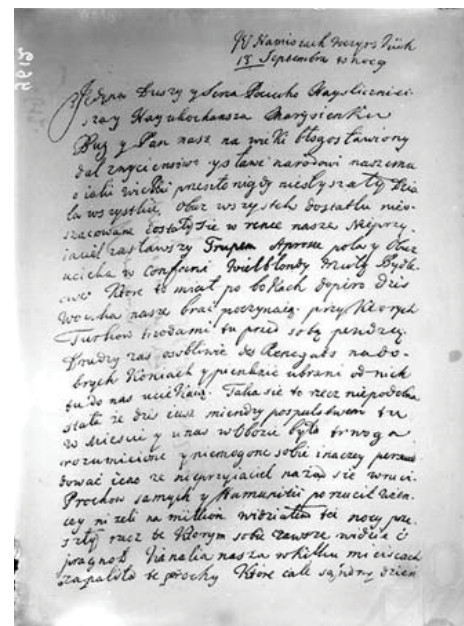 W Namiotach Wezyrskich
13 Septembra w nocy
Jedyna Duszy y Serca Pociecho Nayslicznieÿ
szay Nayukochansza Marysienku
Bug y Pan nasz na wieki błogosławiony
dał zwycienstwo y sławe narodowi naszemu
o iakiÿ wieki przeszłe nigdy niesłyszały Dzia
ła wszystkie, Oboz wszystek dostatki nieo-
szacowane dostały sie w rence nasze Nieprzy-
iaciel zasławszy Trupem Aprosze pola y Oboz
ucieka w Confuzÿi Wielblondy Muły Bydle
owce Które to miał po bokach dopiro dzis
woÿska nasze brac poczynaią przy Których
Turków trzodami tu przed sobą pendzą
Drudzy zas osobliwie des Renegats na do-
brych Koniach y pienknie ubrani od nich
tu do nas uciekaią. Taka sie to rzecz niepodobna
stała ze dzis iusz miendzy pospulstwem tu
w Miescie y u nas w Obozie była trwoga
rozumieione y niemogone sobie inaczey perswa
dować ieno ze nieprzyiaciel nazad sie wruci
Prochow samych y Ammunitii porzucił wien-
cey nizeli na million widziałem tei nocy prze-
szłeÿ rzecz te Ktorym sobie zawsze widziec
pragnoł Kanalia nasza w kilku mieiscach
zapaliła te prochy Które cale sądny dzien